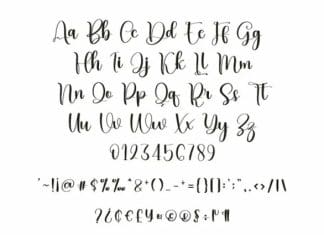 Aa Bb Cc Dd Ee Ff Gg
Hh Ii Jj Kk Ll Mm
Nn Oo Pp Qq Rr Ss Tt
Uu Vv Ww Xx Yy Zz
0123456789
'~!¡@#$%‰*&*()_-+={}[]:;",.<>/|\
?¿¢€£¥¤©®§÷¶